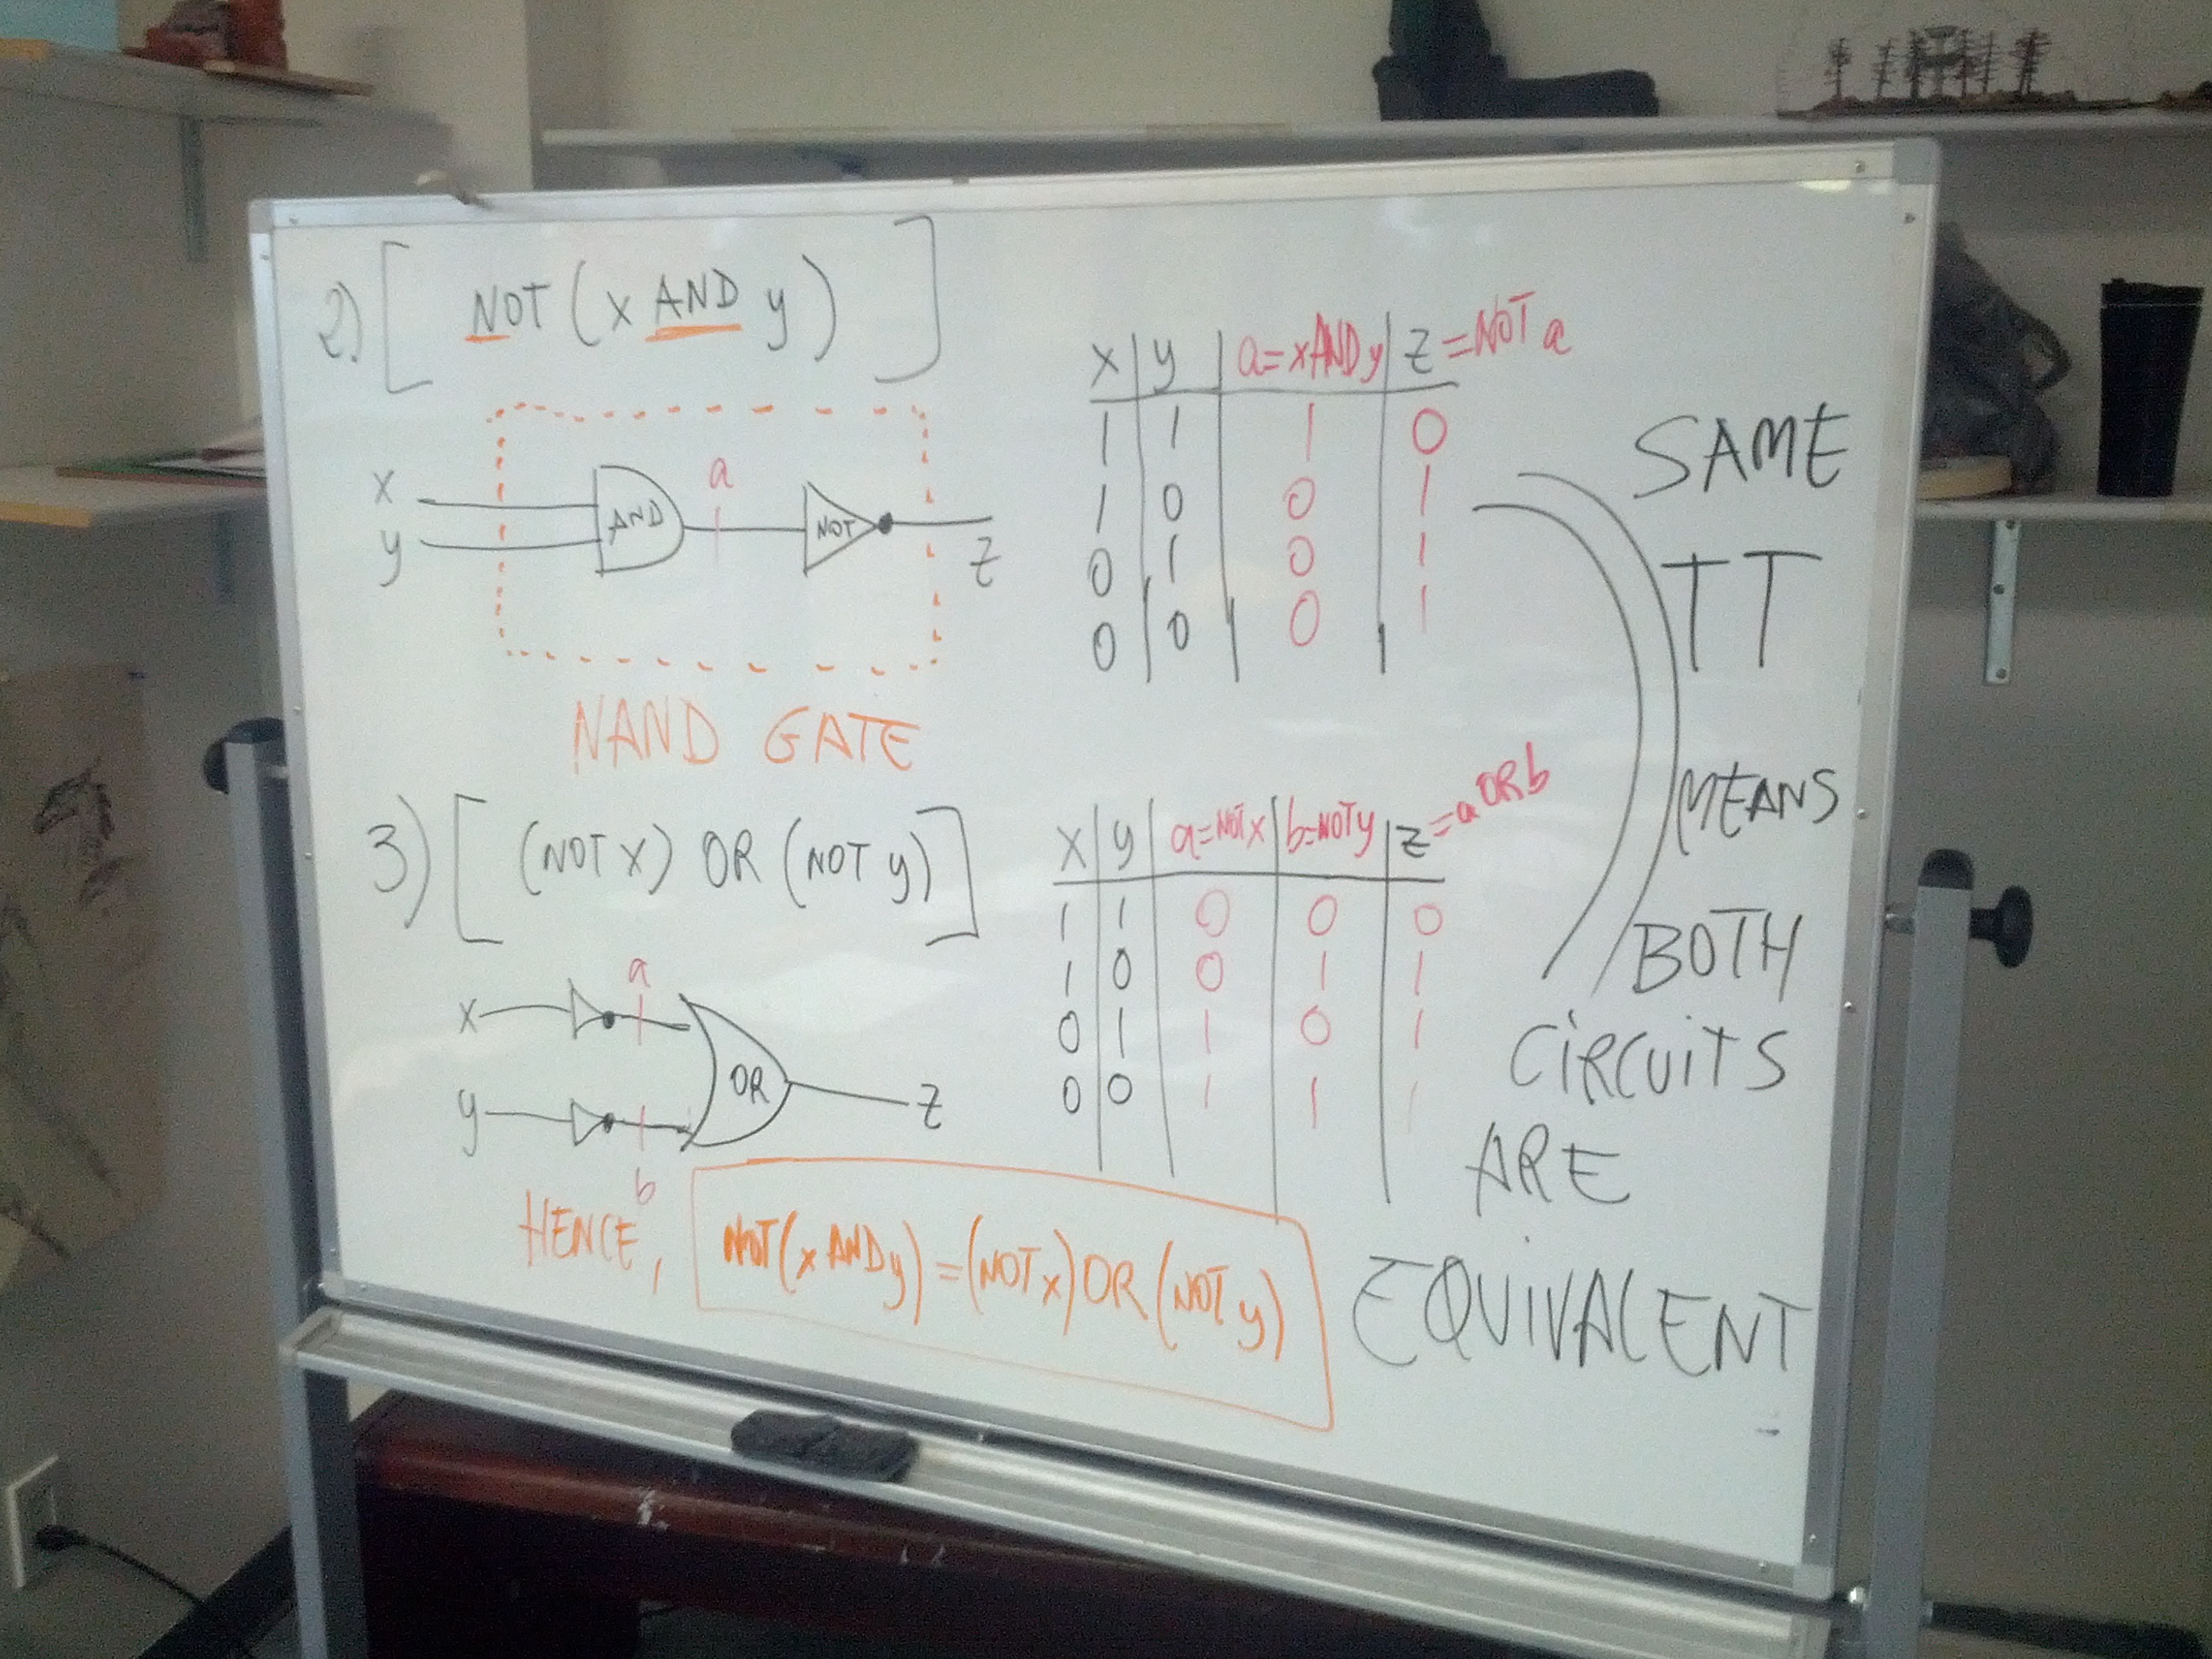 2) [ NOT (x AND y) ]
x
y
AND
a
NOT
z
NAND GATE
x y a=xANDy z=NOT a
1 1 1 0
1 0 0 1
0 1 0 1
0 0 0 1
3) [ (NOT x) OR (NOT y) ]
x
a
y
b
OR
z
x y a=NOTx b=NOTy z=a OR b
1 1 0 0 0
1 0 0 1 1
0 1 1 0 1
0 0 1 1 1
SAME
TT
MEANS
BOTH
CIRCUITS
ARE
EQUIVALENT
HENCE, NOT(x AND y) = (NOT x) OR (NOT y)